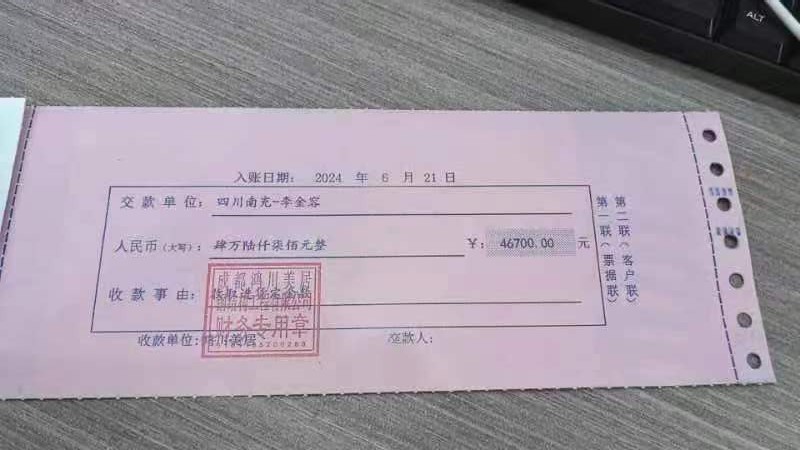 入账日期: 2024 年 6 月 21 日
交款单位: 四川南充-李金容
人民币(大写): 肆万陆仟柒佰元整 ￥: 46700.00 元
收款事由:
收款单位: 川美居 交款人:
成都鸿川美居
财务专用章
第一联(票据联)
第二联(客户联)
ALT